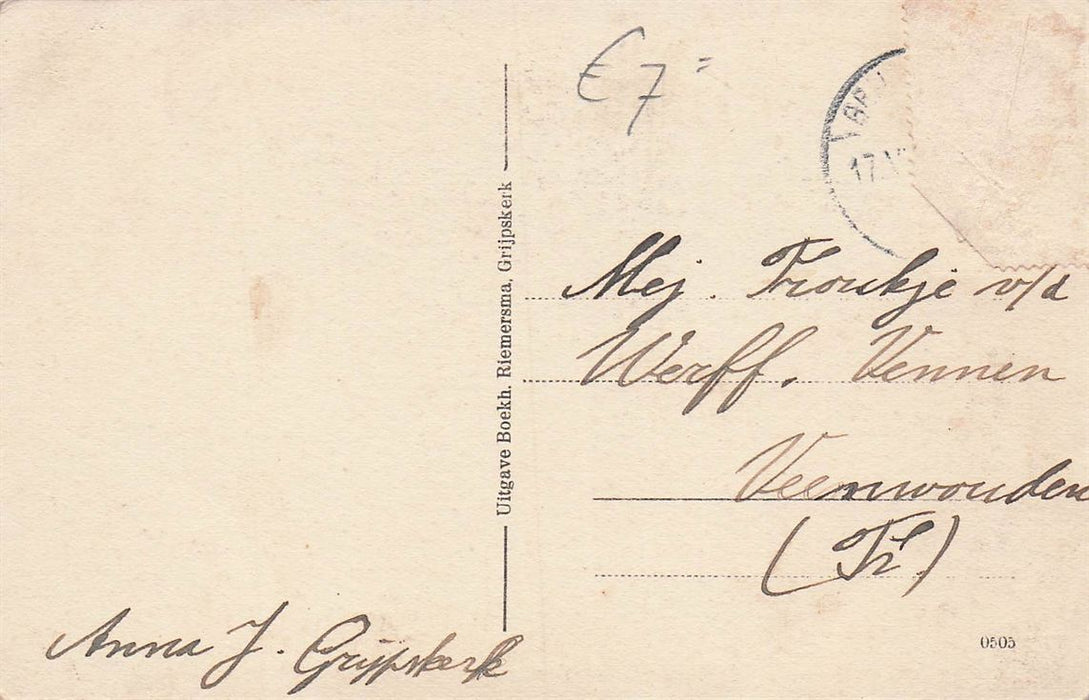 € 7=
17
Mej. Froukje v/d
Werff. Vennen
Veenwouden
(Fr.)
Uitgave Boekh. Riemersma, Grijpskerk
Anna J. Grijpskerk
0505